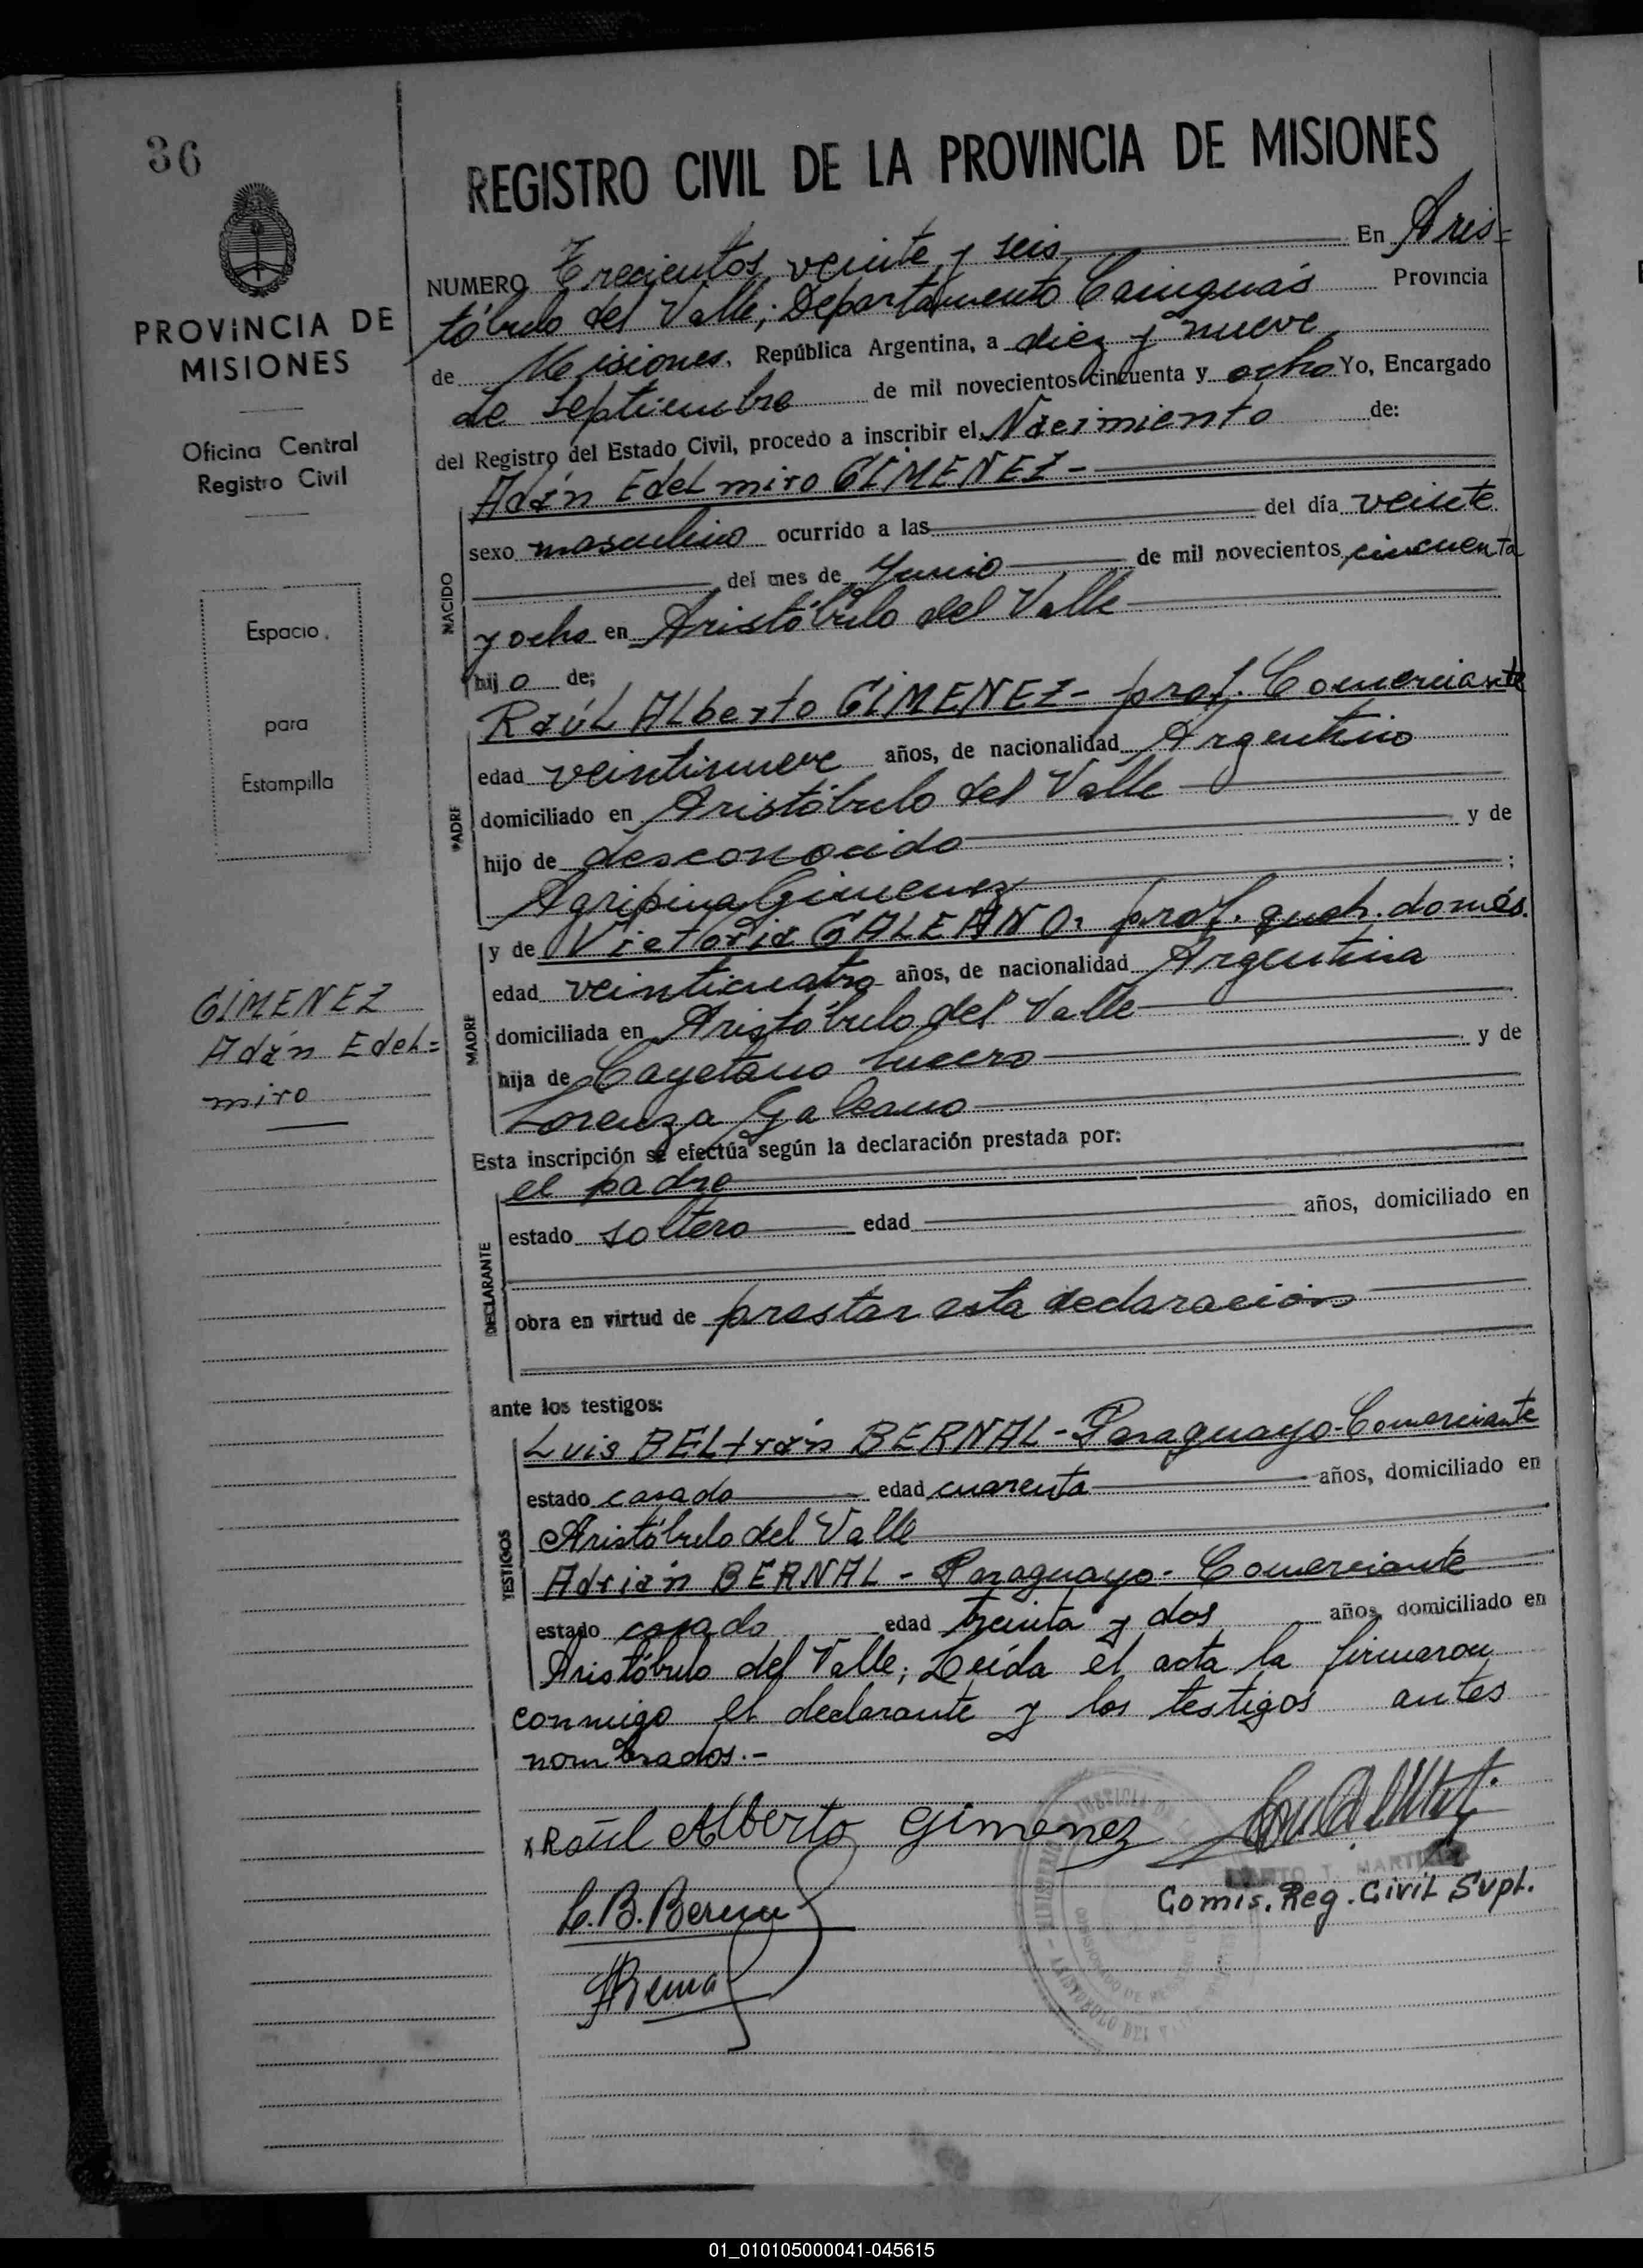 36
PROVINCIA DE
MISIONES
Oficina Central
Registro Civil
Espacio
para
Estampilla
GIMENEZ
Adán Edel=
miro
REGISTRO CIVIL DE LA PROVINCIA DE MISIONES
NUMERO Trecientos veinte y seis En Aris=
tóbulo del Valle; Departamento Cainguás Provincia
de Misiones, República Argentina, a diez y nueve
de septiembre de mil novecientos cincuenta y ocho Yo, Encargado
del Registro del Estado Civil, procedo a inscribir el Nacimiento de:
Adán Edelmiro GIMENEZ-
NACIDO
sexo masculino ocurrido a las del día veinte
del mes de Junio de mil novecientos cincuenta
y ocho en Aristóbulo del Valle
hijo de;
Raúl Alberto GIMENEZ- prof. Comerciante
PADRE
edad veintinueve años, de nacionalidad Argentino
domiciliado en Aristóbulo del Valle
hijo de desconocido y de
Agripina Gimenez ;
y de Victoria GALEANO: prof. queh. domés.
MADRE
edad veinticuatro años, de nacionalidad Argentina
domiciliada en Aristóbulo del Valle
hija de Cayetano Lucero y de
Lorenza Galeano
Esta inscripción se efectúa según la declaración prestada por:
el padre
DECLARANTE
estado soltero edad años, domiciliado en
obra en virtud de prestar esta declaración
ante los testigos:
Luis BELtrán BERNAL-Paraguayo-Comerciante
TESTIGOS
estado casado edad cuarenta años, domiciliado en
Aristóbulo del Valle
Adrián BERNAL - Paraguayo- Comerciante
estado casado edad treinta y dos años, domiciliado en
Aristóbulo del Valle; Leída el acta la firmaron
conmigo el declarante y los testigos antes
nombrados.-
x Raúl Alberto Gimenez
T. MARTI
Comis. Reg. Civil Supl.
L.B.Bernal
01_010105000041-045615